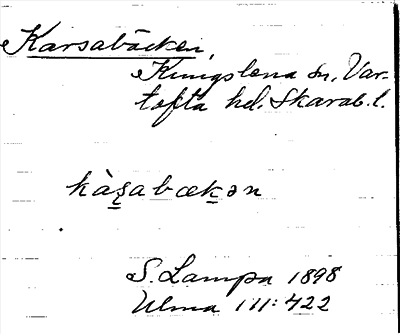 Karsabäcken,
Kungslena sn, Var-
tofta hd. Skarab. l.
kàʂabækən
S. Lampa 1898
Ulma 111:422